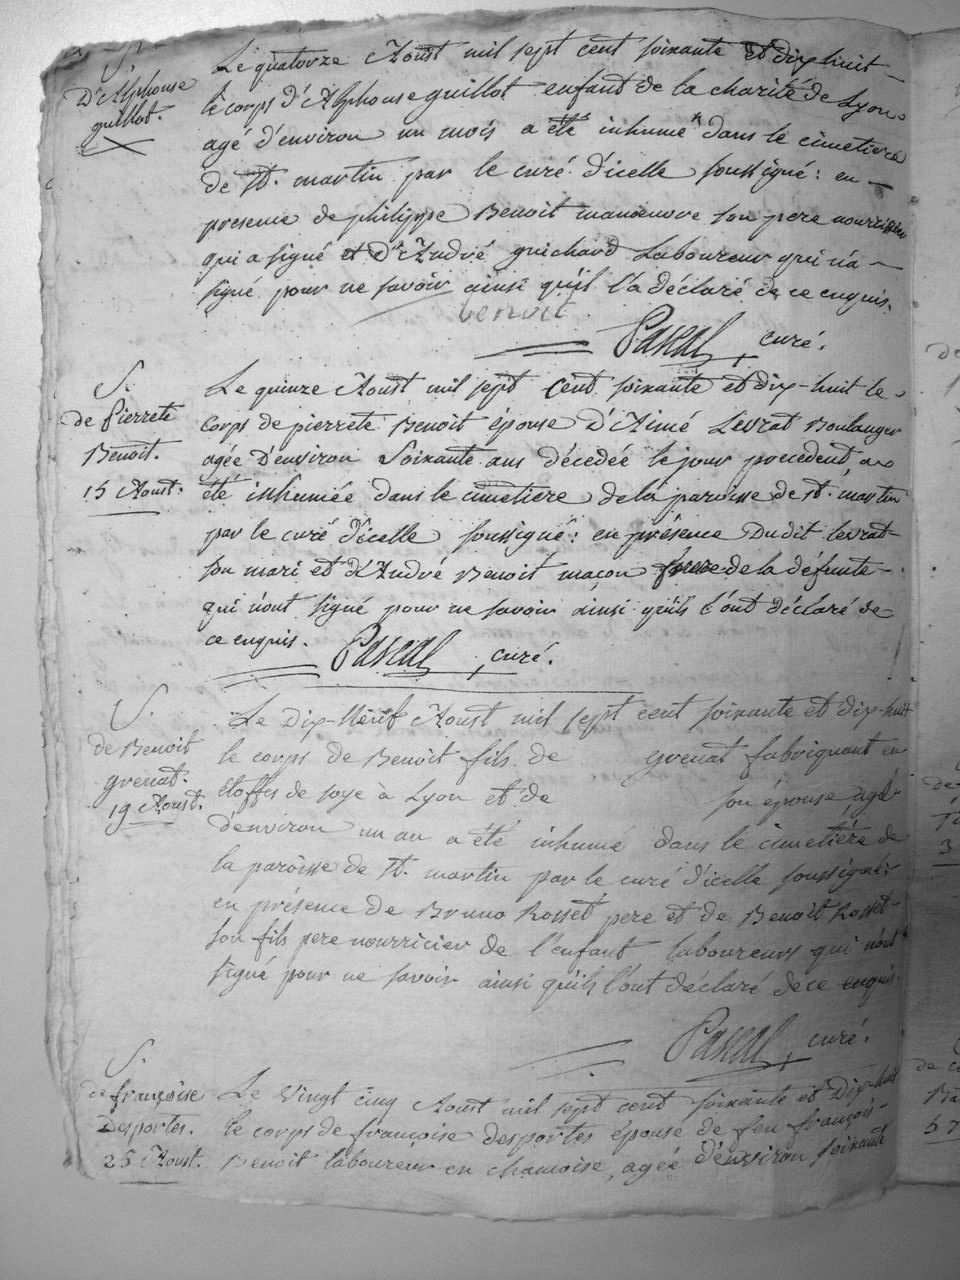 S.
D'Alphonse
guillot.
Le quatorze Aoust mil sept cent soixante et dix huit
le corps d'Alphonse guillot enfant de la charité de Lyon
agé d'environ un mois a été inhumé dans le cimetiere
de St. martin par le curé d'icelle soussigné : en
presence de philippe Benoit manoeuvre son pere nourricier
qui a signé et d'André guichard Laboureur qui n'a
signé pour ne savoir ainsi qu'il l'a déclaré de ce enquis.
benoit
Pascal, curé.
S.
de Pierrete
Benoit.
15 Aoust.
Le quinze Aoust mil sept cent soixante et dix-huit le
corps de pierrete Benoit épouse d'Aimé Levrat Boulanger
agée d'environ soixante ans décedée le jour précedent, a
été inhumée dans le cimetiere de la paroisse de St. martin
par le curé d'icelle soussigné : en présence dudit levrat
son mari et d'André Benoit maçon frere de la défunte
qui n'ont signé pour ne savoir ainsi qu'ils l'ont déclaré de
ce enquis. Pascal, curé.
S.
de Benoit
grenat.
19 Aoust.
Le Dix-Neuf Aoust mil sept cent soixante et dix-huit
le corps de Benoit fils de grenat fabriquant en
étoffes de soye à Lyon et de son épouse, agé
d'environ un an a été inhumé dans le cimetiére de
la paroisse de St. martin par le curé d'icelle soussigné :
en présence de Bruno Rosset pere et de Benoit Rosset
son fils pere nourricier de l'enfant laboureurs qui n'ont
signé pour ne savoir ainsi qu'ils l'ont déclaré de ce enquis
Pascal, curé.
S.
de françoise
Desportes.
25 Aoust.
Le vingt cinq Aoust mil sept cent soixante et Dix-huit
le corps de françoise desportes épouse de feu françois
Benoit laboureur en chamoise, agée d'environ soixante